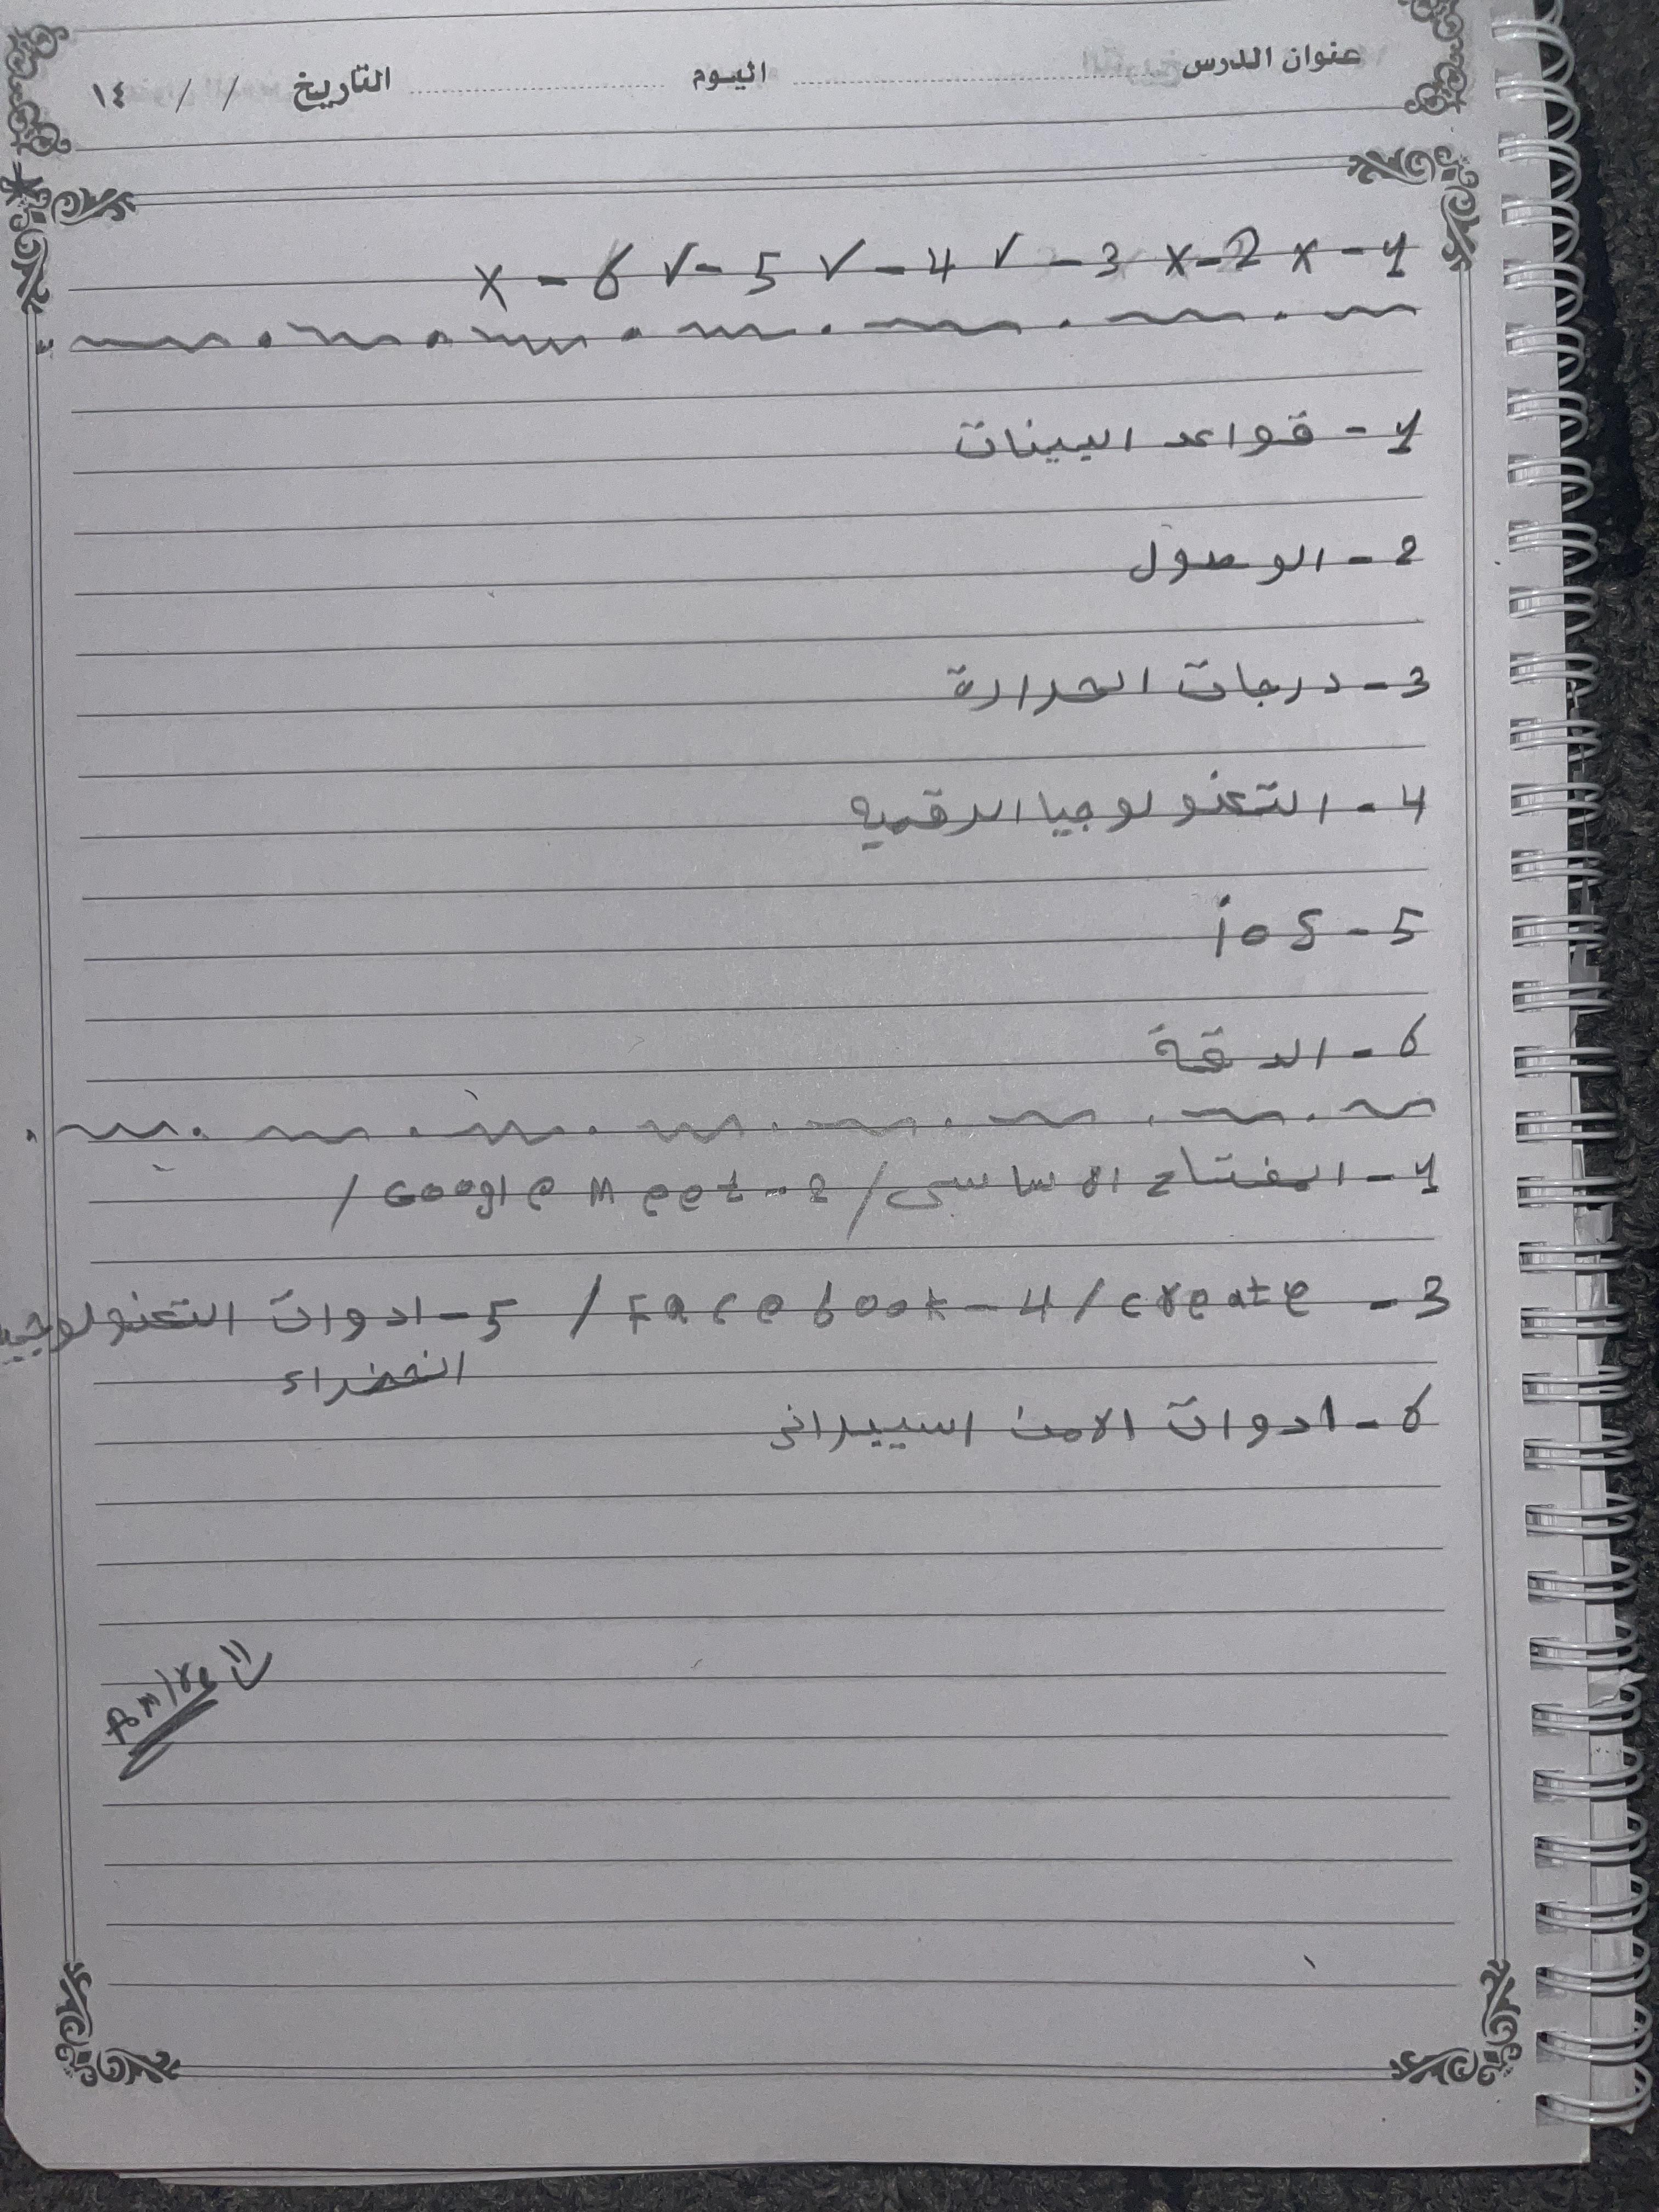 عنوان الدرس اليوم التاريخ / / ١٤
1 - x 2 - x 3 - ✓ 4 - ✓ 5 - ✓ 6 - x
1 - قواعد البينات
2 - الوصول
3 - درجات الحرارة
4 - التكنولوجيا الرقميه
5 - ios
6 - الدقة
1 - المفتاح الاساسى / 2 - Google Meet /
3 - create / 4 - Facebook / 5 - ادوات التكنولوجيه
الخضراء
6 - ادوات الامن اسيبرانى